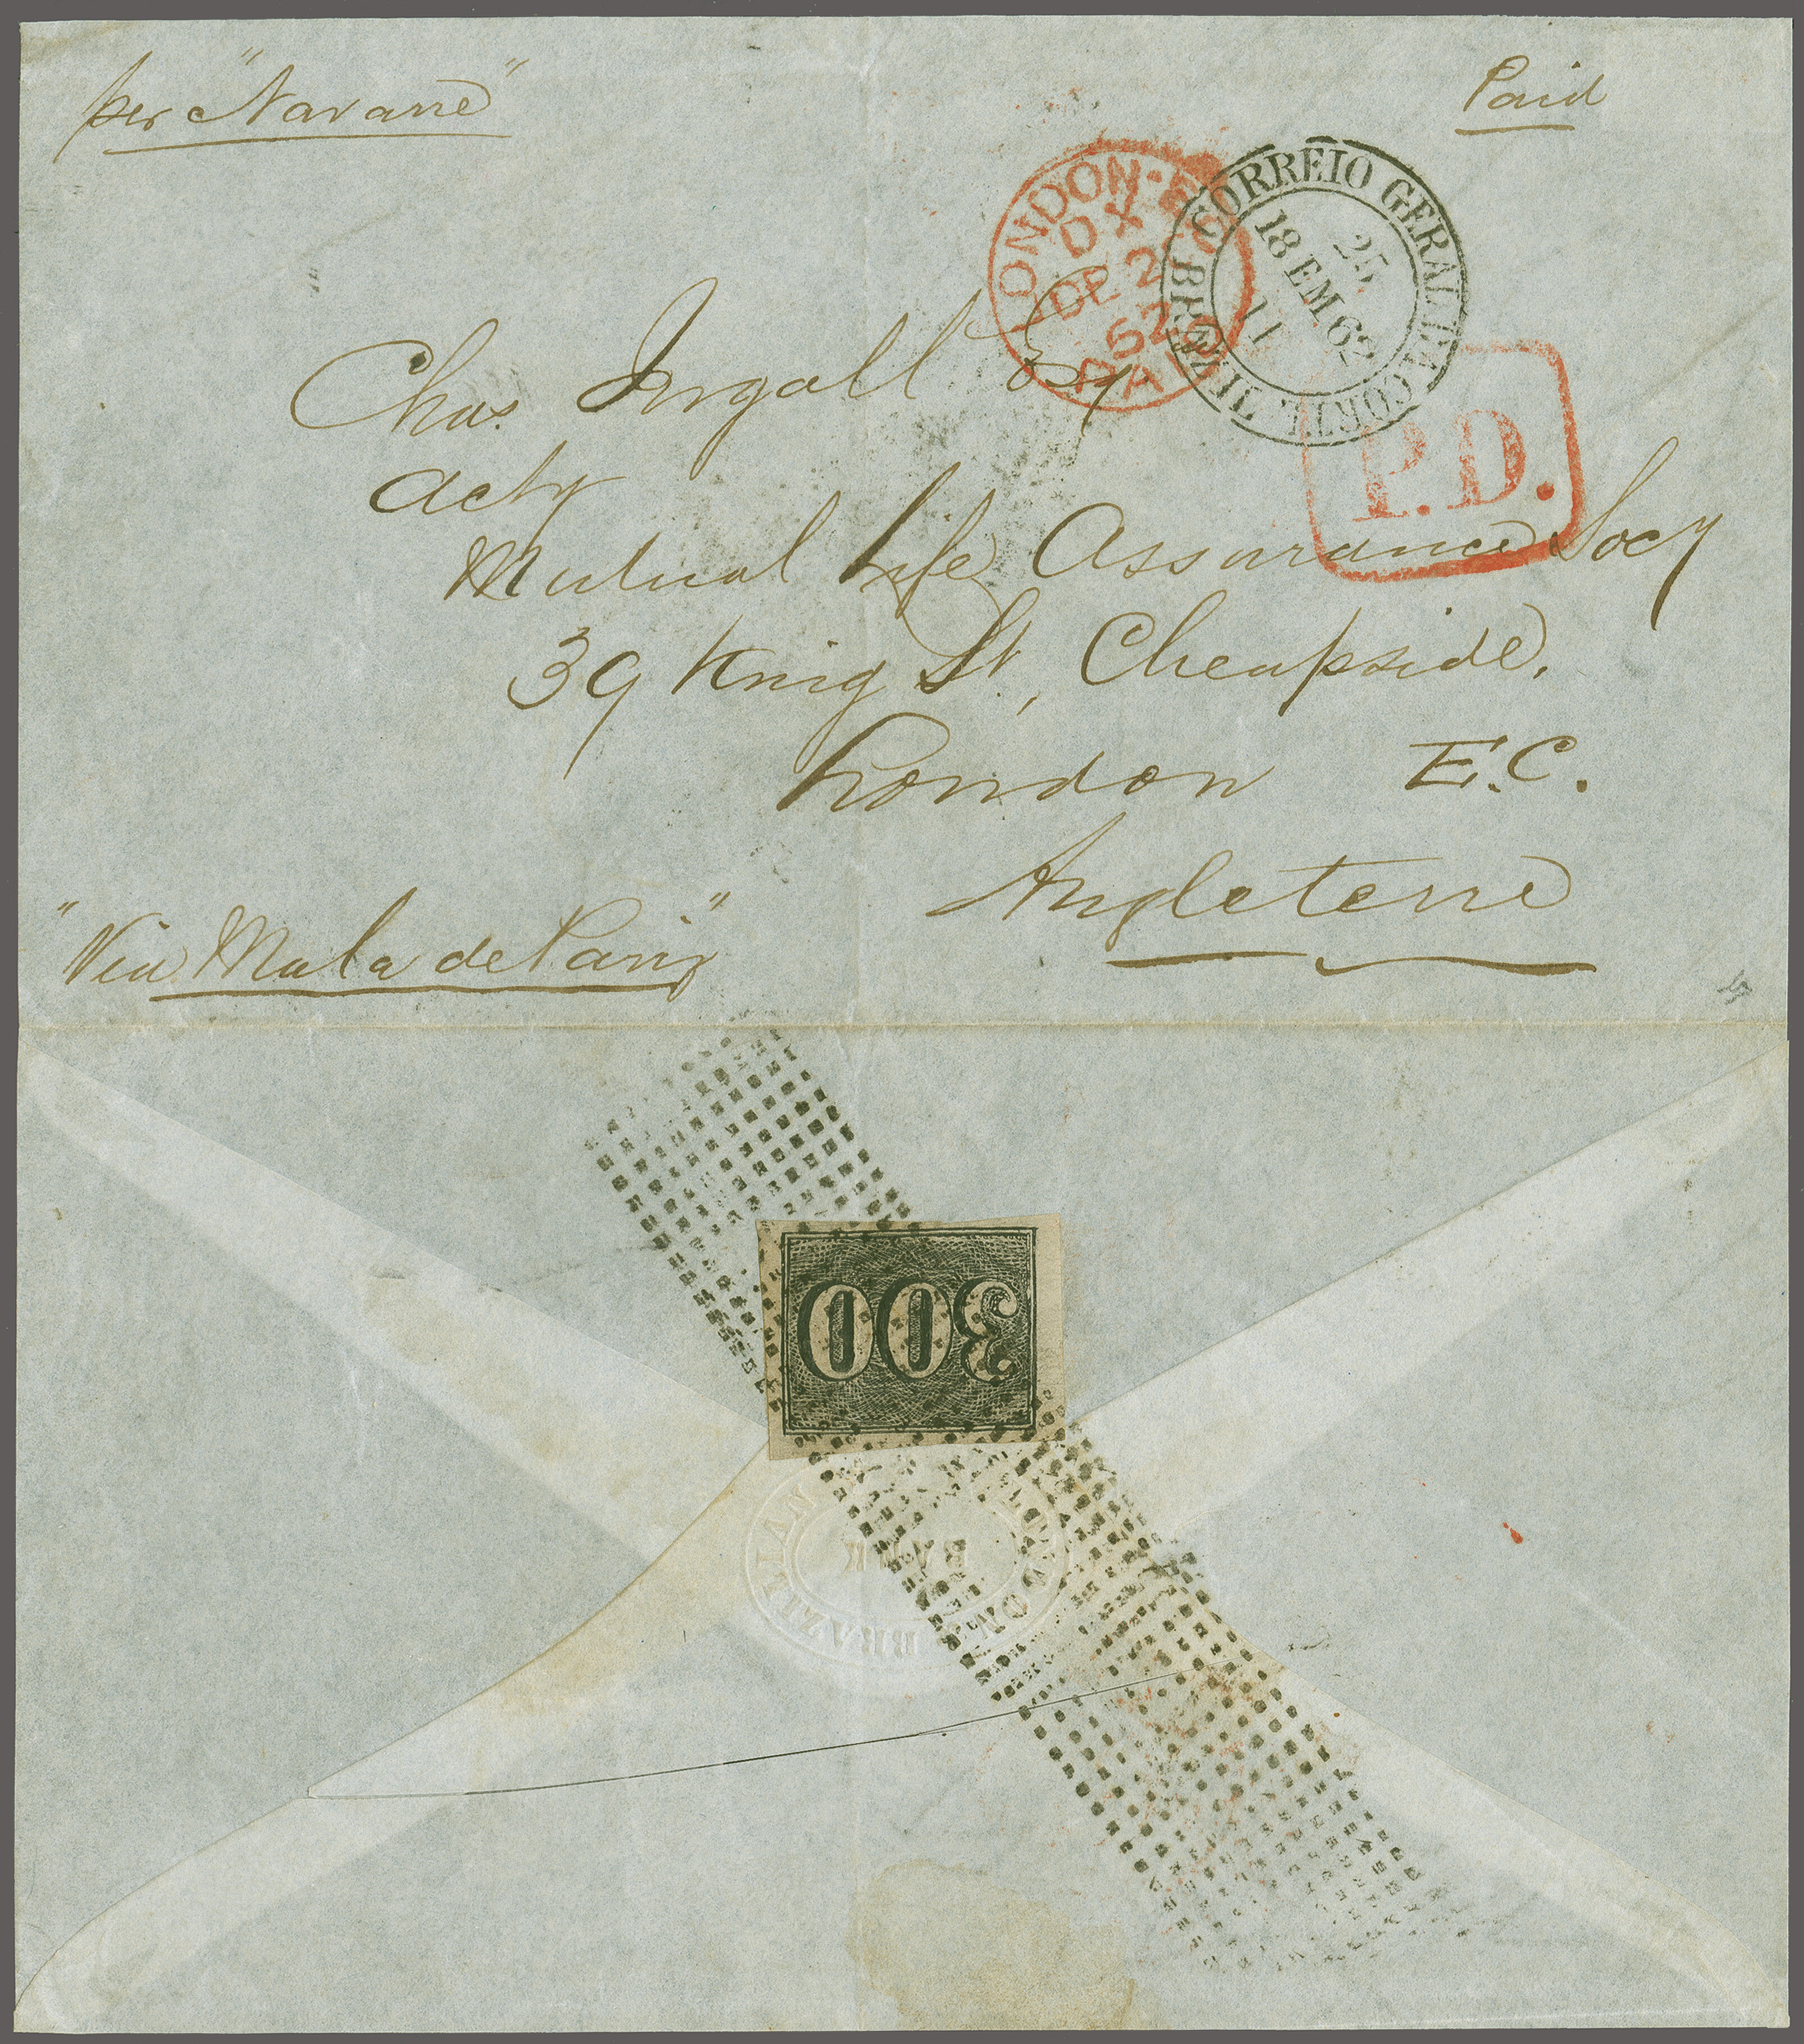 per "Navarre"
Paid
LONDON - E.C
DX
DE 2
62
PAID
CORREIO GERAL DA CORTE
BRAZIL
25
18 EM 62
11
P.D.
Chas. Ingall Esq
Acty
Mutual Life Assurance Socy
39 King St, Cheapside,
London E.C.
Angleterre
"Via Mala de Paris"
300
LONDON & BRAZILIAN
BANK